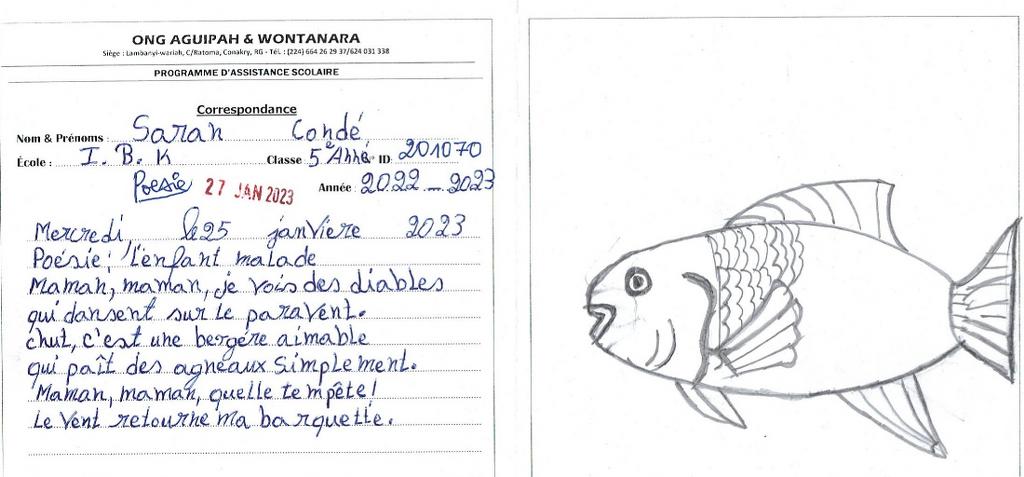 ONG AGUIPAH & WONTANARA
Siège : Lambanyi-wariah, C/Ratoma, Conakry, RG - Tél. : (224) 664 26 29 37/624 031 338
PROGRAMME D'ASSISTANCE SCOLAIRE
Correspondance
Nom & Prénoms : Saran Condé
École : I. B. K Classe 5e Année ID: 201070
Poesie 27 JAN 2023 Année : 2022 - 2023
Mercredi, le 25 janvière 2023
Poésie; l'enfant malade
Maman, maman, je vois des diables
qui dansent sur le paravent.
chut, c'est une bergère aimable
qui paît des agneaux simplement.
Maman, maman, quelle tempête!
Le vent retourne ma barquette.